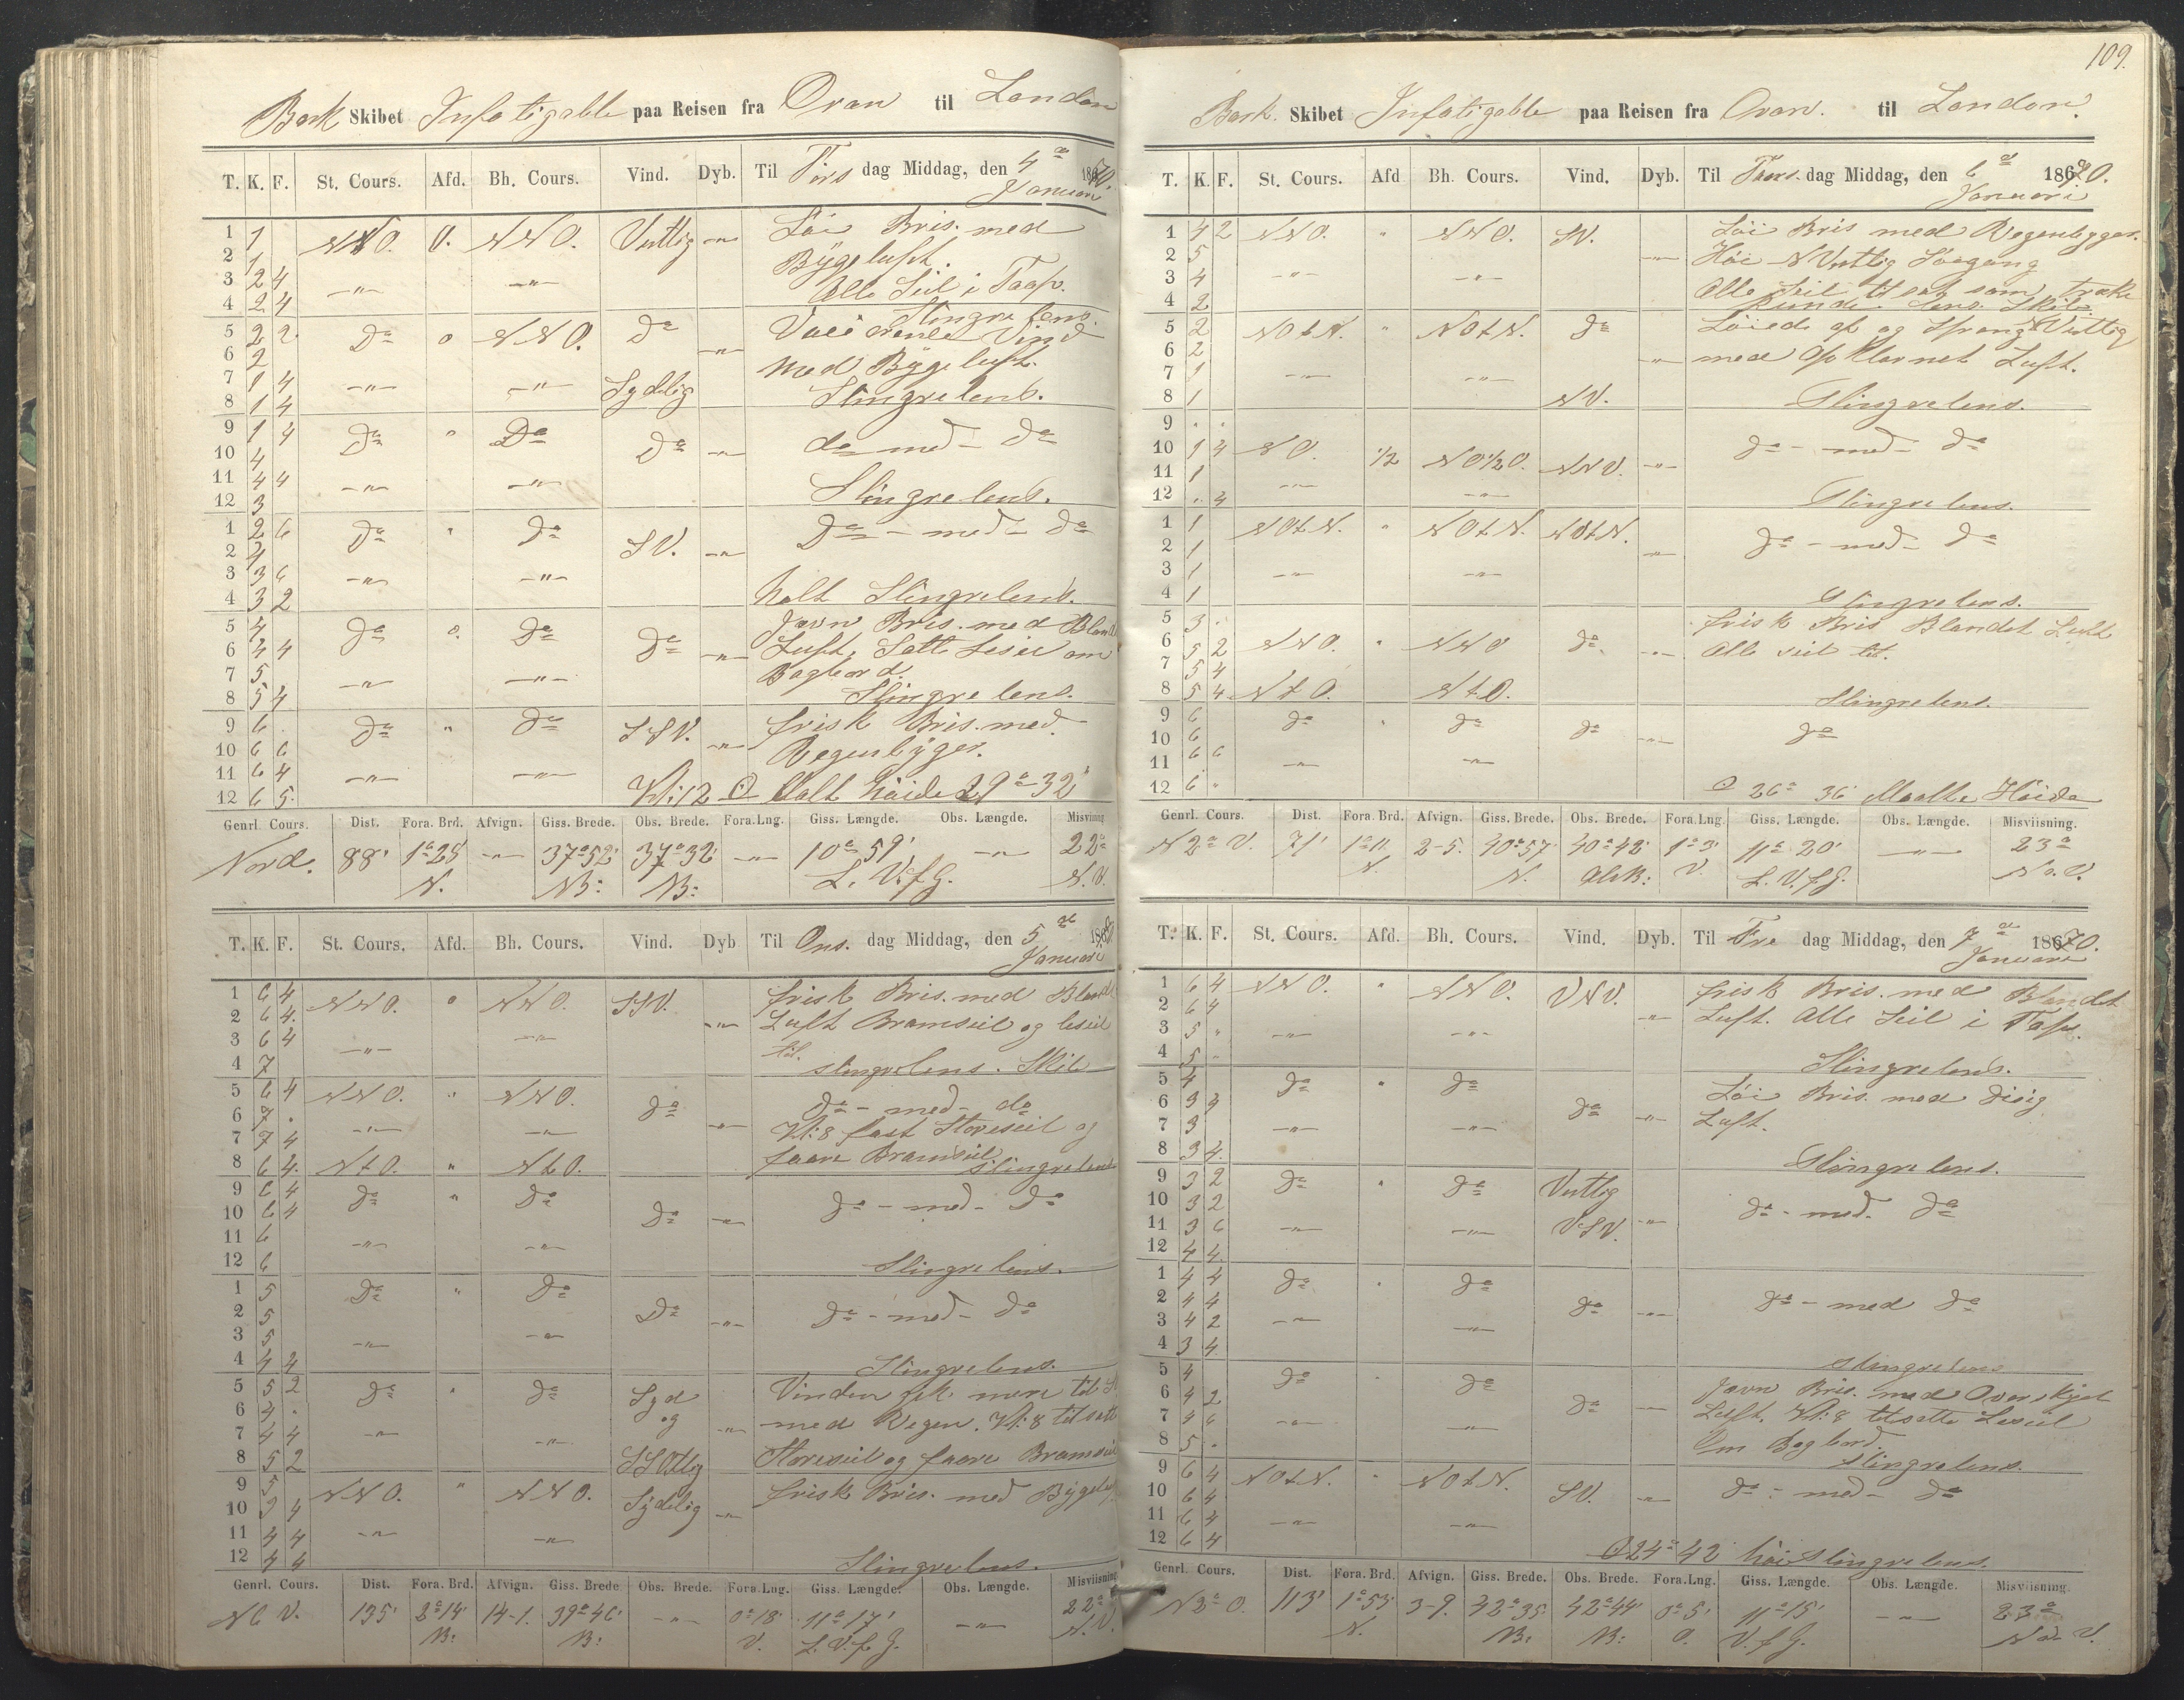 Bark Skibet Infatigable paa Reisen fra Oran til London
T. K. F. St. Cours. Afd. Bh. Cours. Vind. Dyb. Til Tirs dag Middag, den 4de Januari 1870.
1 1 NNO. 0. NNO. Vestlig -"- Löi Bris. med
2 1 Bÿgeluft.
3 2 4 -"- -"- Alle Seil i Taap.
4 2 4 Slingre lens.
5 2 2 Do 0 NNO. do -"- Vind
6 2 med Bÿgeluft.
7 1 4 -"- -"- Sydelig
8 1 4 Slingrelens.
9 1 4 Do " Do Do -"- do med do
10 4
11 4 4 -"- -"-
12 3 Slingrelens.
1 2 6 Do " do SV. -"- Do - med - do
2 4
3 3 6 -"- -"-
4 3 2 Holt Slingrelens.
5 4 do 0. do do -"- Javn Bris. med Bland
6 4 4 Luft, Satte Leseil om
7 5 -"- -"- Bagbord.
8 5 4 Slingre lens.
9 6 do " do SSV. -"- frisk Bris. med
10 6 6 Regenbÿger.
11 6 4 -"- -"-
12 6 5 Kl: 12 ⊙ Malt höide 29° 32'
Genrl. Cours. Dist. Fora. Brd. Afvign. Giss. Brede. Obs. Brede. Fora. Lng. Giss. Længde. Obs. Længde. Misvisning
Nord. 88' 1°28' N. -"- 37°52' NB: 37°32' NB: -"- 10°59' L. V. f G. -"- 22° N. V.
T. K. F. St. Cours. Afd. Bh. Cours. Vind. Dyb Til Ons. dag Middag, den 5de Januari 1870
1 6 4 NNO. 0 NNO. SSV. -"- frisk Bris. med Bland
2 6 4. Luft Bramseil og leseil
3 6 4 -"- -"- til.
4 7 slingrelens. Skib
5 6 4 NNO. " NNO. do -"- do - med - do
6 7 . -"- -"- Kl: 8 fast Storeseil og
7 7 4 faare Bramseil
8 6 4. NtO. " NtO. slingrelens
9 6 4 do " do do -"- do - med - do
10 6 4
11 6 -"- -"-
12 6 Slingrelens.
1 5 Do " Do Do -"- do - med - do
2 5
3 5 -"- -"-
4 4 4 Slingrelens.
5 5 2 do " do Syd og SSOtlig -"- Vinden fik mere til S
6 4 . med Regen. Kl: 8 tilsatt
7 4 4 -"- -"-
8 5 2 Storeseil og faare Bramseil
9 5 NNO. " NNO. Sÿdelig -"- frisk Bris. med Bÿgeluf
10 3 4
11 4 4 -"- -"-
12 4 4 Slingrelens.
Genrl. Cours. Dist. Fora. Brd. Afvign. Giss. Brede Obs. Brede. Fora. Lng. Giss. Længde. Obs. Længde. Misviisning
N6 V. 135' 2°14' NB: 14-1. 39°46' NB: -"- 0°18' V. 11°17' L. V. f G. -"- 22° N. V.
109.
Bark. Skibet Infatigable paa Reisen fra Oran. til London.
T. K. F. St. Cours. Afd Bh. Cours. Vind. Dyb. Til Tors. dag Middag, den 6te Januari 1870.
1 4 2 NNO. " NNO. SV. -"- Löi Bris med Regenbyger.
2 5 Höi NVestlig Söegang
3 4 -"- -"- Alle Seil til sat som trække
4 2 kunde. lens. Skib.
5 2 NOtN. " NOtN. do -"- Löiede af og Sprang NVestlig
6 2 med opklarnet Luft.
7 1 -"- -"-
8 1 NV. Slingrelens.
9 . .
10 1 4 NO. 1/2 NO1/2O. NNV. -"- do - med - do
11 1 -"- -"-
12 . 4 Slingrelens.
1 1 NOtN. " NOtN. NOtN. -"- do - med - do
2 1
3 1 -"- -"-
4 1 Slingrelens.
5 3 . frisk Bris Blandet Luft
6 5 2 NNO. " NNO do -"- Alle seil til.
7 5 4
8 5 4 NtO. NtO. Slingrelens.
9 6 do " do do -"- do
10 6
11 6 6 -"- -"-
12 6 " ⊙ 26° 36' Maalte Höide
Genrl. Cours. Dist. Fora. Brd. Afvign. Giss. Brede. Obs. Brede. Fora. Lng. Giss. Længde. Obs. Længde. Misviisning.
N2° V. 71' 1°11' N. 2-5. 40°57' N. 40°42' 1°3' V. 11° 20' L. V. f. G. -"- 23° No. V.
T. K. F. St. Cours. Afd. Bh. Cours. Vind. Dyb. Til Fre dag Middag, den 7de Januari 1870.
1 6 4 NNO. " NNO. VNV. frisk Bris. med Blandet
2 6 4 -"- Luft. Alle Seil i Tap.
3 5 " -"- -"-
4 5 " Slingrelens.
5 4 do " do Löi Bris. med disig
6 3 4 do -"- Luft.
7 3 -"- -"-
8 3 4. Slingrelens.
9 3 2 do " do Vestlig
10 3 2 do - med. do
11 3 6 -"- -"- VSV. -"-
12 4 4. 
1 4 4 do " do
2 4 4 do -"- do - med do
3 4 2 -"- -"-
4 3 4 Slingrelens
5 4 do do Javn Bris. med Overskÿet
6 4 2 do -"- Luft. Kl: 8 tilsatte Leseil
7 4 6 -"- -"- Om Bagbord.
8 5 . slingrelens.
9 6 4 NOtN. " NOtN. SV. -"- do - med - do
10 6 4
11 6 4 -"- -"-
12 6 4 ⊙24° 42' höi Slingrelens.
Genrl. Cours. Dist. Fora. Brd. Afvign. Giss. Brede. Obs. Brede. Fora. Lng. Giss. Længde. Obs. Længde. Misviisning.
N2° O. 113' 1°53' N. 3-9. 42°35' NB: 42°44' NB: 0°5' O. 11°15' V. f G. -"- 23° No V.